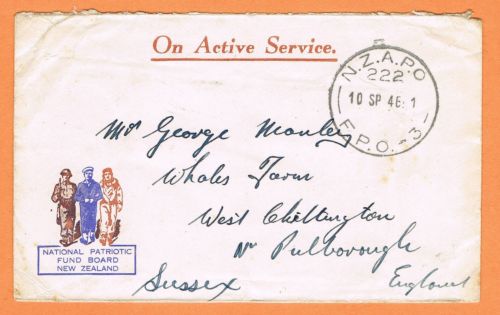 On Active Service.
N.Z.A.P.O
222
10 SP 46: 1
F.P.O. -3-
Mr George Manley
Whales Farm
West Chillington
Nr Pulborough
Sussex England
NATIONAL PATRIOTIC
FUND BOARD
NEW ZEALAND